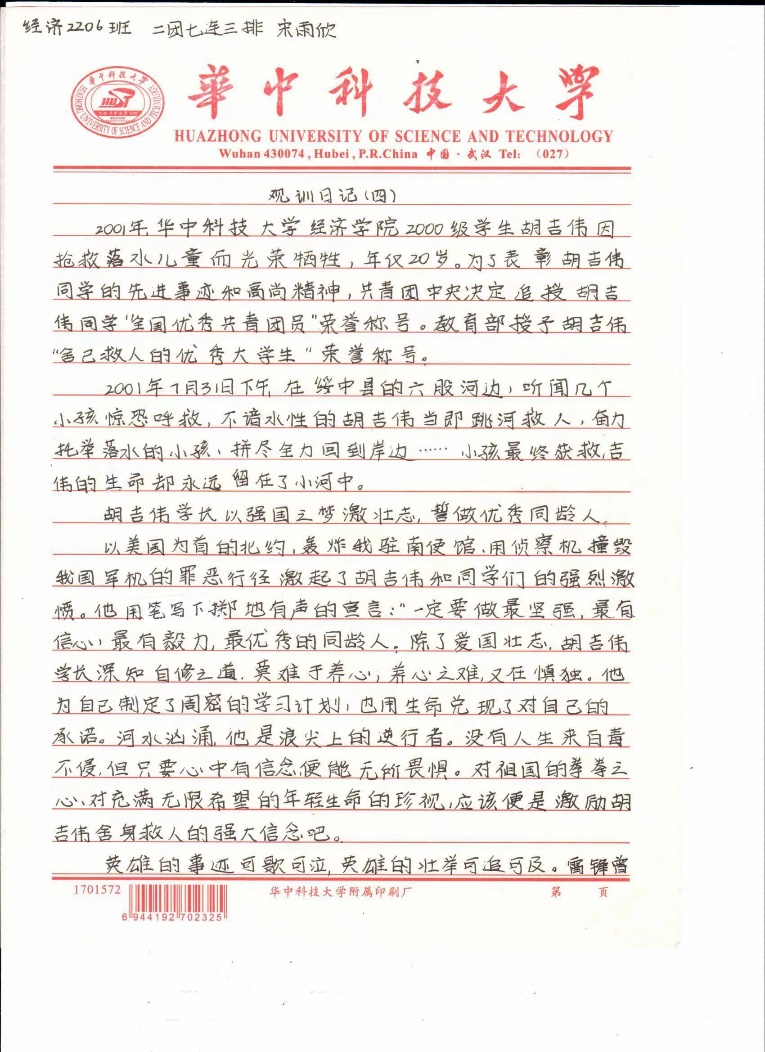 经济2206班 二团七连三排 宋雨欣
華中科技大学
HUAZHONG UNIVERSITY OF SCIENCE AND TECHNOLOGY
Wuhan 430074, Hubei, P.R.China 中国·武汉 Tel: (027)
观训日记(四)
2001年,华中科技大学经济学院2000级学生胡吉伟因
抢救落水儿童而光荣牺牲,年仅20岁。为了表彰胡吉伟
同学的先进事迹和高尚精神,共青团中央决定追授胡吉
伟同学“全国优秀共青团员”荣誉称号。教育部授予胡吉伟
“舍己救人的优秀大学生”荣誉称号。
2001年7月31日下午,在绥中县的六股河边,听闻几个
小孩惊恐呼救,不谙水性的胡吉伟当即跳河救人,奋力
托举落水的小孩,拼尽全力回到岸边……小孩最终获救,吉
伟的生命却永远留在了小河中。
胡吉伟学长以强国之梦激壮志,誓做优秀同龄人。
以美国为首的北约,轰炸我驻南使馆、用侦察机撞毁
我国军机的罪恶行径激起了胡吉伟和同学们的强烈激
愤。他用笔写下掷地有声的宣言:“一定要做最坚强,最有
信心,最有毅力,最优秀的同龄人。除了爱国壮志,胡吉伟
学长深知自修之道,莫难于养心;养心之难,又在慎独。他
为自己制定了周密的学习计划,也用生命兑现了对自己的
承诺。河水汹涌,他是浪尖上的逆行者。没有人生来百毒
不侵,但只要心中有信念,便能无所畏惧。对祖国的拳拳之
心,对充满无限希望的年轻生命的珍视,应该便是激励胡
吉伟舍身救人的强大信念吧。
英雄的事迹可歌可泣,英雄的壮举可追可及。雷锋曾
1701572 华中科技大学附属印刷厂 第 页
6 944192 702325